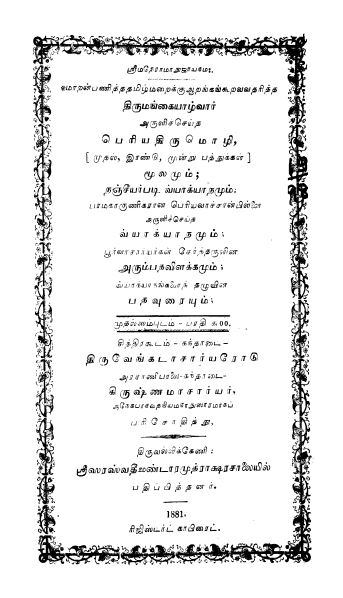 ஸ்ரீமதேராமாநுஜாயநம:.
ஏமாறன்பணித்ததமிழ்மறைக்குஆறங்கங்கூறஅவதரித்த
திருமங்கையாழ்வார்
அருளிச்செய்த
பெரியதிருமொழி,
[ முதல், இரண்டு, மூன்று பத்துக்கள் ]
மூலமும்;
நஞ்சீயர்படி வ்யாக்யாநமும்;
பரமகாருணிகரான பெரியவாச்சான்பிள்ளை
அருளிச்செய்த
வ்யாக்யாநமும்;
பூர்வாசார்யர்கள் சேர்ந்தருளின
அரும்பதவிளக்கமும்;
வ்யாக்யாநங்களைத் தழுவின
பதவுரையும்;
முதலாமைபுடம் - பரதி
சித்திரகூடம் - கந்தாடை -
திருவேங்கடாசார்யரோடு
கந்தாடை-
கிருஷ்ணமாசார்யர்,
பரிசோதித்து,
திருவல்லிக்கேணி:
ஸ்ரீஸரஸ்வதீமண்டாரமுத்ராக்ஷரசாலையில்
பதிப்பித்தனர்.
1881.
ரிஜிஸ்டர்ட் காபிரைட்.